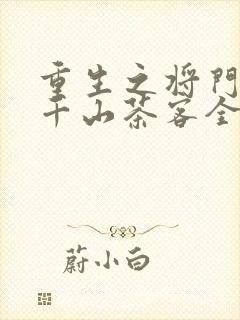 重生之将门
千山茶客全
蔚小白